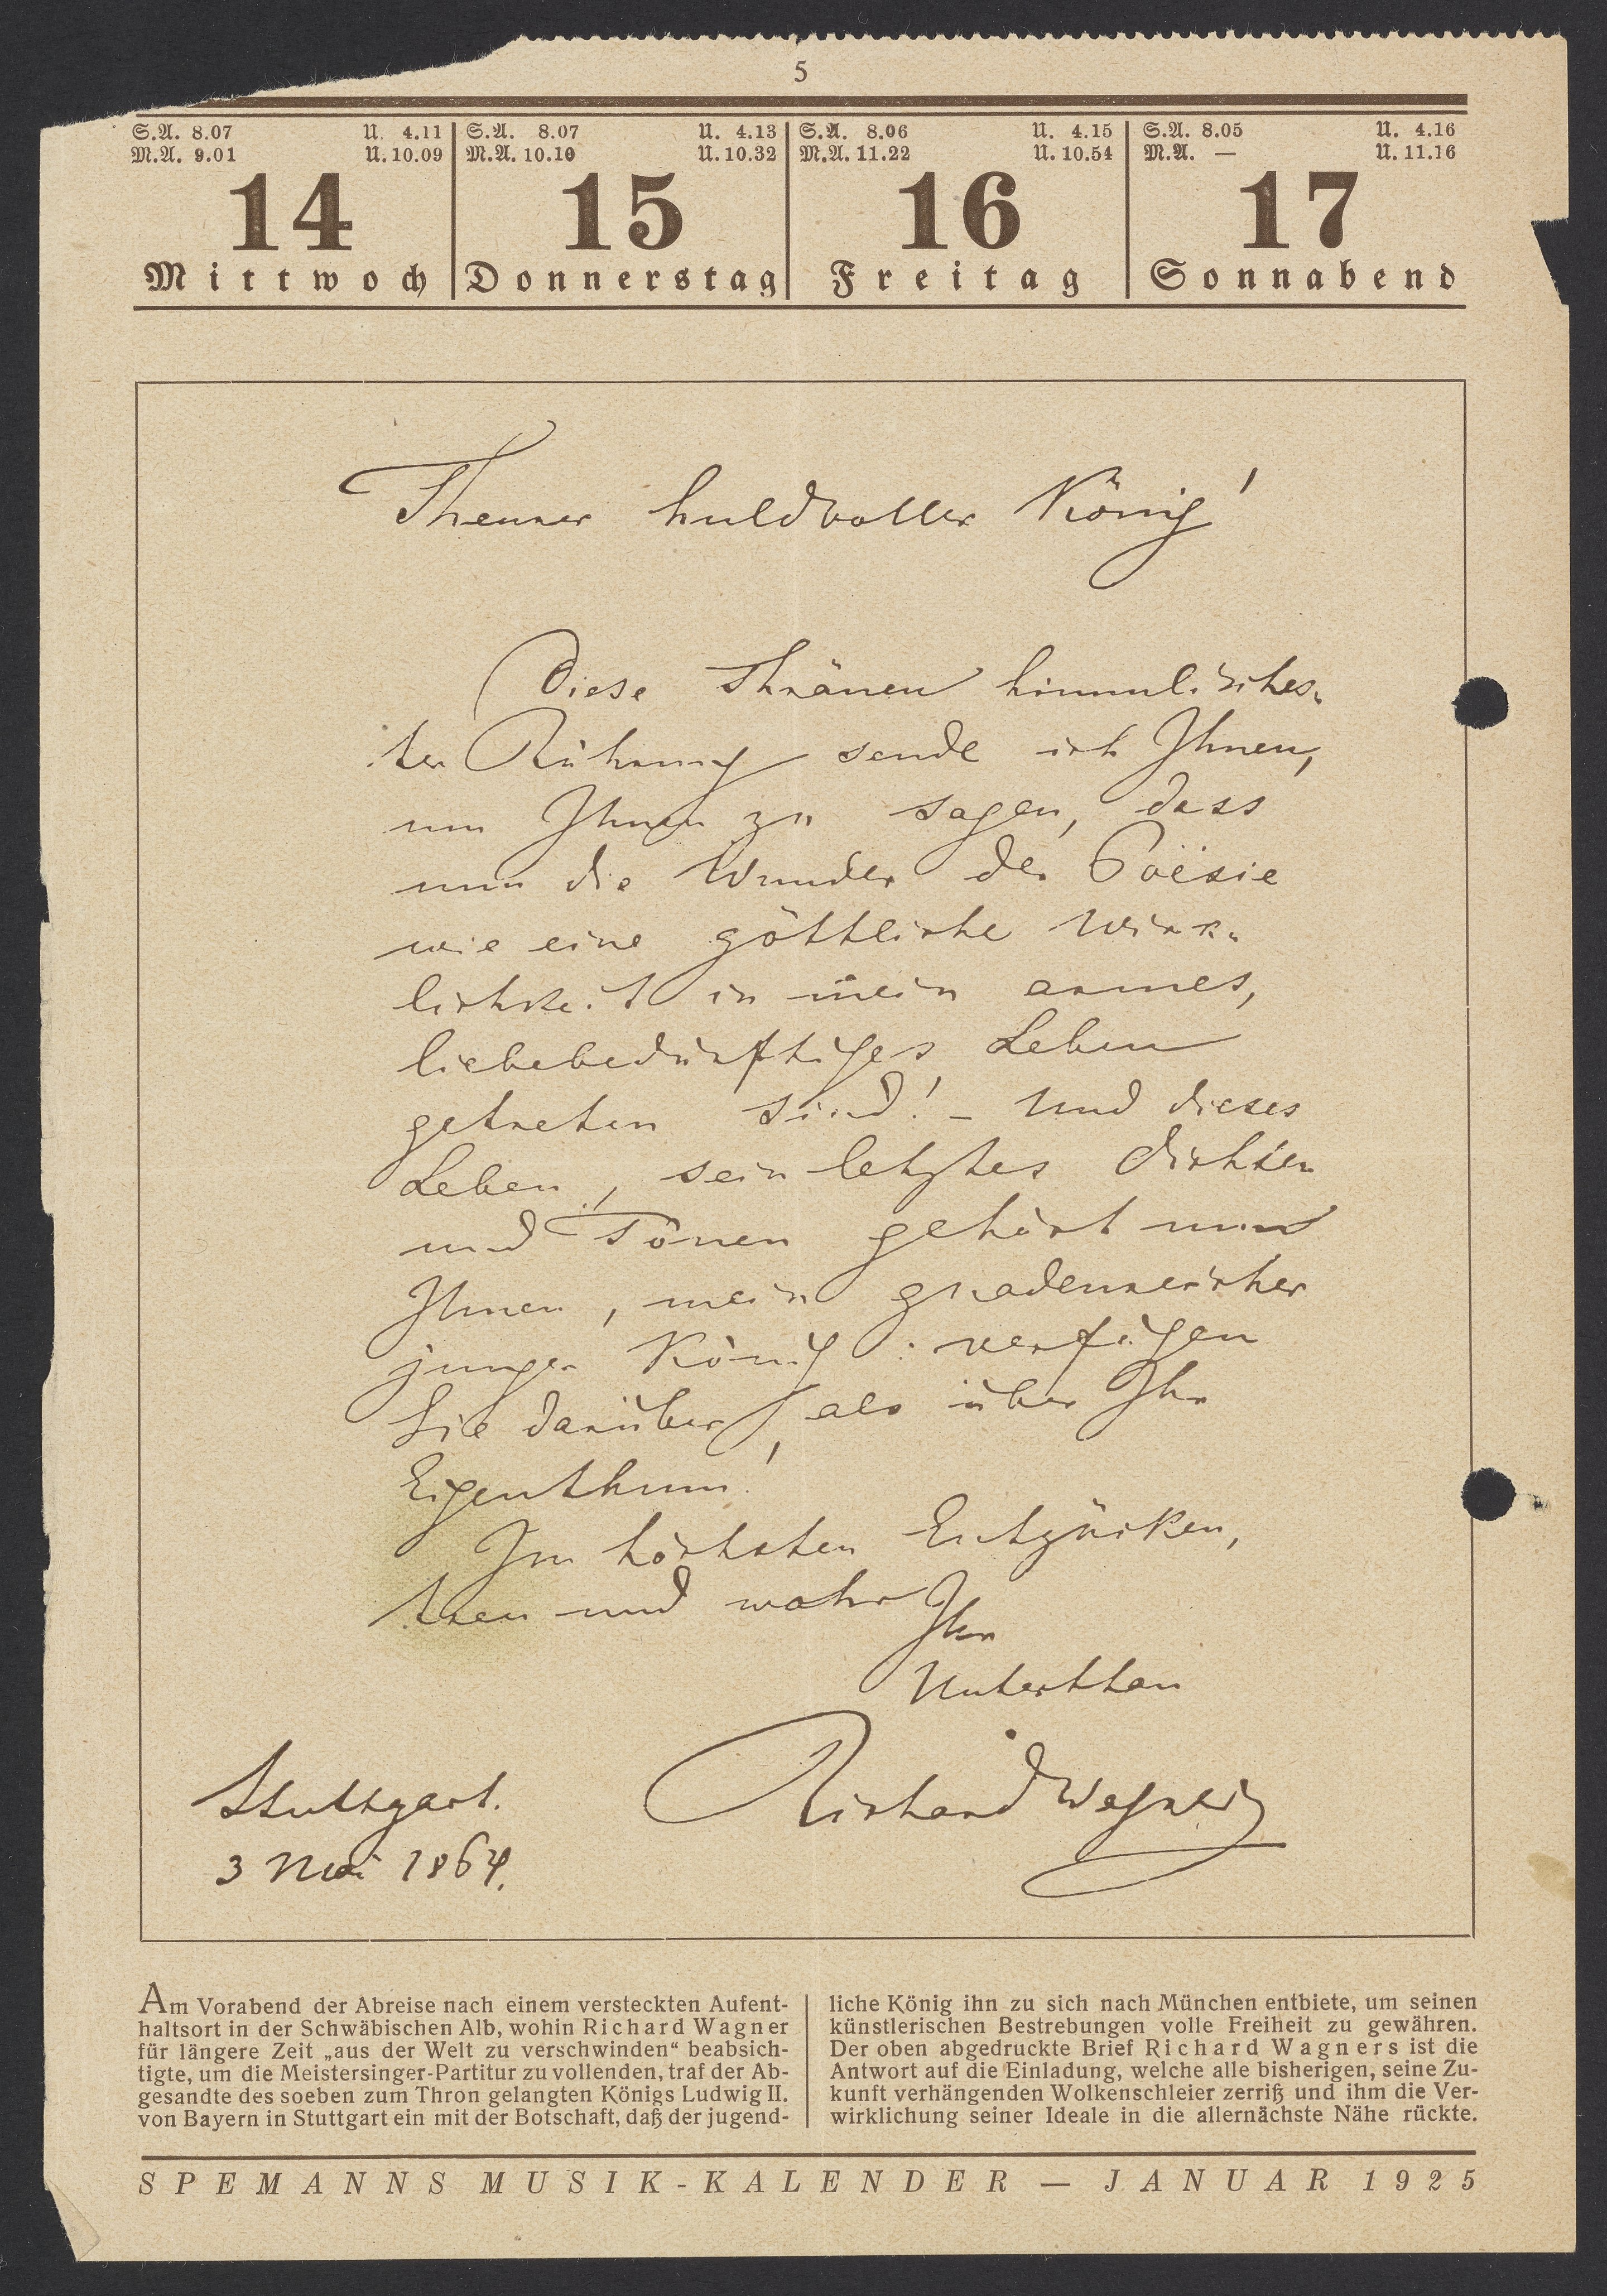 5
S.A. 8.07 U. 4.11
M.A. 9.01 U. 10.09
14
Mittwoch
S.A. 8.07 U. 4.13
M.A. 10.10 U. 10.32
15
Donnerstag
S.A. 8.06 U. 4.15
M.A. 11.22 U. 10.54
16
Freitag
S.A. 8.05 U. 4.16
M.A. — U. 11.16
17
Sonnabend
Theurer huldvoller König!
Diese Thränen himmlisches-
ter Rührung sende ich Ihnen,
um Ihnen zu sagen, dass
nun die Wunder der Poësie
wie eine göttliche Wirk-
lichkeit in mein armes,
liebebedürftiges Leben
getreten sind! – Und dieses
Leben, sein letztes Dichten
und Tönen gehört nun
Ihnen, mein gnadenreicher
junger König: verfügen
Sie darüber als über Ihr
Eigenthum!
Im höchsten Entzücken,
treu und wahr
Ihr
Unterthan
Richard Wagner
Stuttgart.
3 Mai 1864.
Am Vorabend der Abreise nach einem versteckten Aufent-
haltsort in der Schwäbischen Alb, wohin Richard Wagner
für längere Zeit „aus der Welt zu verschwinden“ beabsich-
tigte, um die Meistersinger-Partitur zu vollenden, traf der Ab-
gesandte des soeben zum Thron gelangten Königs Ludwig II.
von Bayern in Stuttgart ein mit der Botschaft, daß der jugend-
liche König ihn zu sich nach München entbiete, um seinen
künstlerischen Bestrebungen volle Freiheit zu gewähren.
Der oben abgedruckte Brief Richard Wagners ist die
Antwort auf die Einladung, welche alle bisherigen, seine Zu-
kunft verhängenden Wolkenschleier zerriß und ihm die Ver-
wirklichung seiner Ideale in die allernächste Nähe rückte.
SPEMANNS MUSIK-KALENDER — JANUAR 1925